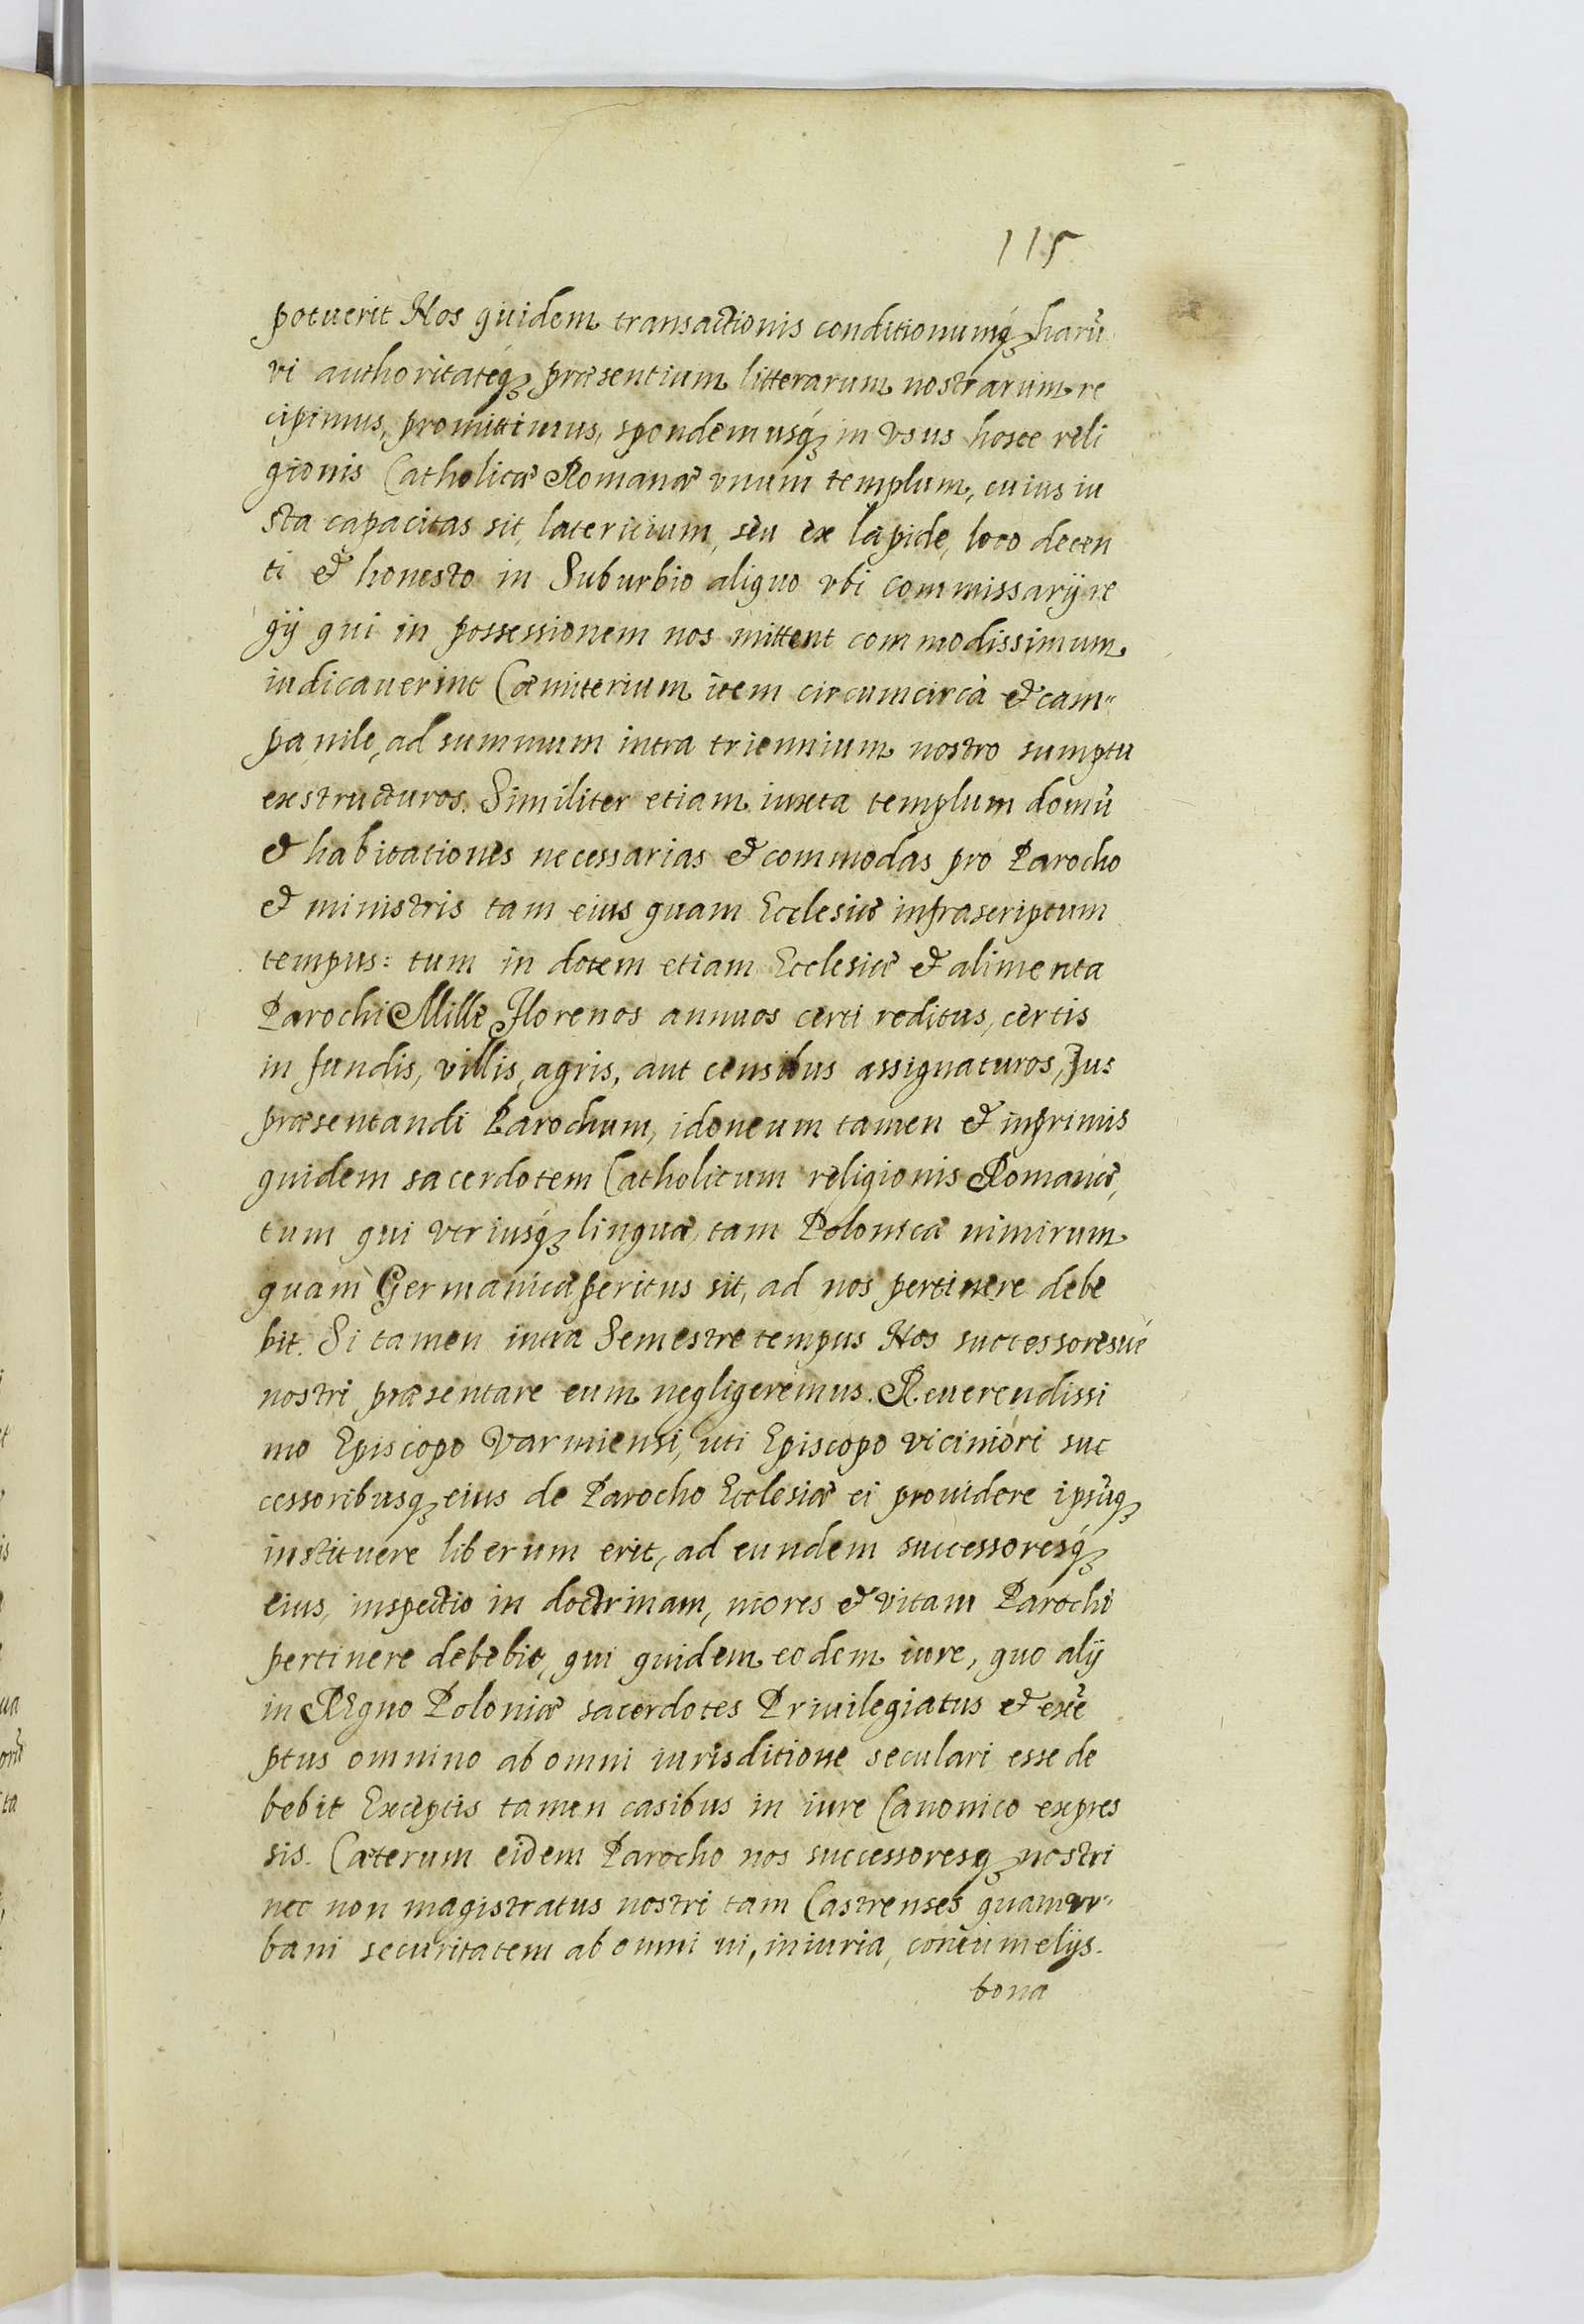 115
potuerit Nos quidem transactionis conditionumq́ꝫ harũ
vi authoritateq́ꝫ præsentium litterarum nostrarum re
cipimus, promittimus, spondemusq́ꝫ in vsus hosce reli
gionis Catholicæ Romanæ vnum templum, cuius iu
sta capacitas sit, latericium, seu ex lapide, loco decen
ti et honesto in Suburbio aliquo vbi commissarij re
gij qui in possessionem nos mittent commodissimum
iudicauerint Cæmiterium item circumcircà et cam"
panile, ad summum intra triennium nostro sumptu
exstructuros. Similiter etiam iuxta templum domũ
et habitationes necessarias et commodas pro Parocho
et ministris tam eius quam Ecclesiæ infrascriptum
tempus: tum in dotem etiam Ecclesiæ et alimenta
Parochi Mille Florenos annuos certi reditus, certis
in fundis, villis, agris, aut censibus assignaturos, Jus
præsentandi Parochum, idoneum tamen et inprimis
quidem sacerdotem Catholicum religionis Romanæ,
tum qui vtriusq́ꝫ linguæ, tam Polonicæ nimirum
quam Germanicæ peritus sit, ad nos pertinere debe
bit. Si tamen intra Semestre tempus Nos successoresué
nostri præsentare eum negligeremus. Reuerendissi
mo Episcopo Varmiensi, uti Episcopo viciniori suc
cessoribusqꝫ eius de Parocho Ecclesiæ ei prouidere ipsũqꝫ
instituere liberum erit, ad eundem successoresq́ꝫ
eius, inspectio in doctrinam, mores et vitam Parochi
pertinere debebit, qui quidem eodem iure, quo alij
in REgno Poloniæ sacerdotes Priuilegiatus et exẽ
ptus omnino ab omni iurisditione seculari esse de
bebit Exceptis tamen casibus in iure Canonico expres
sis. Cæterum eidem Parocho nos successoresqꝫ nostri
nec non magistratus nostri tam Castrenses quam vr"
bani securitatem ab omni ui, iniuria, contumelijs.
bona